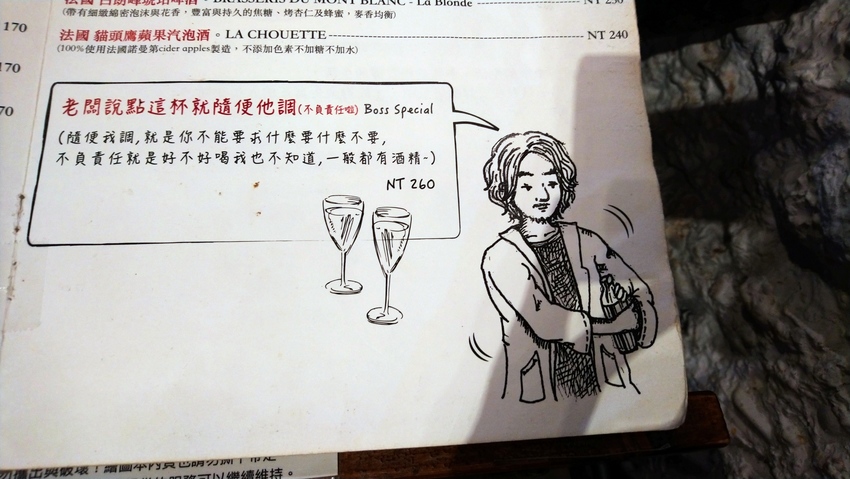 法國 白朗峰琥珀啤酒。BRASSERIS DU MONT BLANC - La Blonde NT 250
(帶有細緻綿密泡沫與花香，豐富與持久的焦糖、烤杏仁及蜂蜜，麥香均衡)
170
法國 貓頭鷹蘋果汽泡酒。LA CHOUETTE NT 240
(100%使用法國諾曼第cider apples製造，不添加色素不加糖不加水)
170
70
老闆說點這杯就隨便他調(不負責任啦) Boss Special
(隨便我調,就是你不能要求什麼要什麼不要,
不負責任就是好不好喝我也不知道,一般都有酒精~)
NT 260